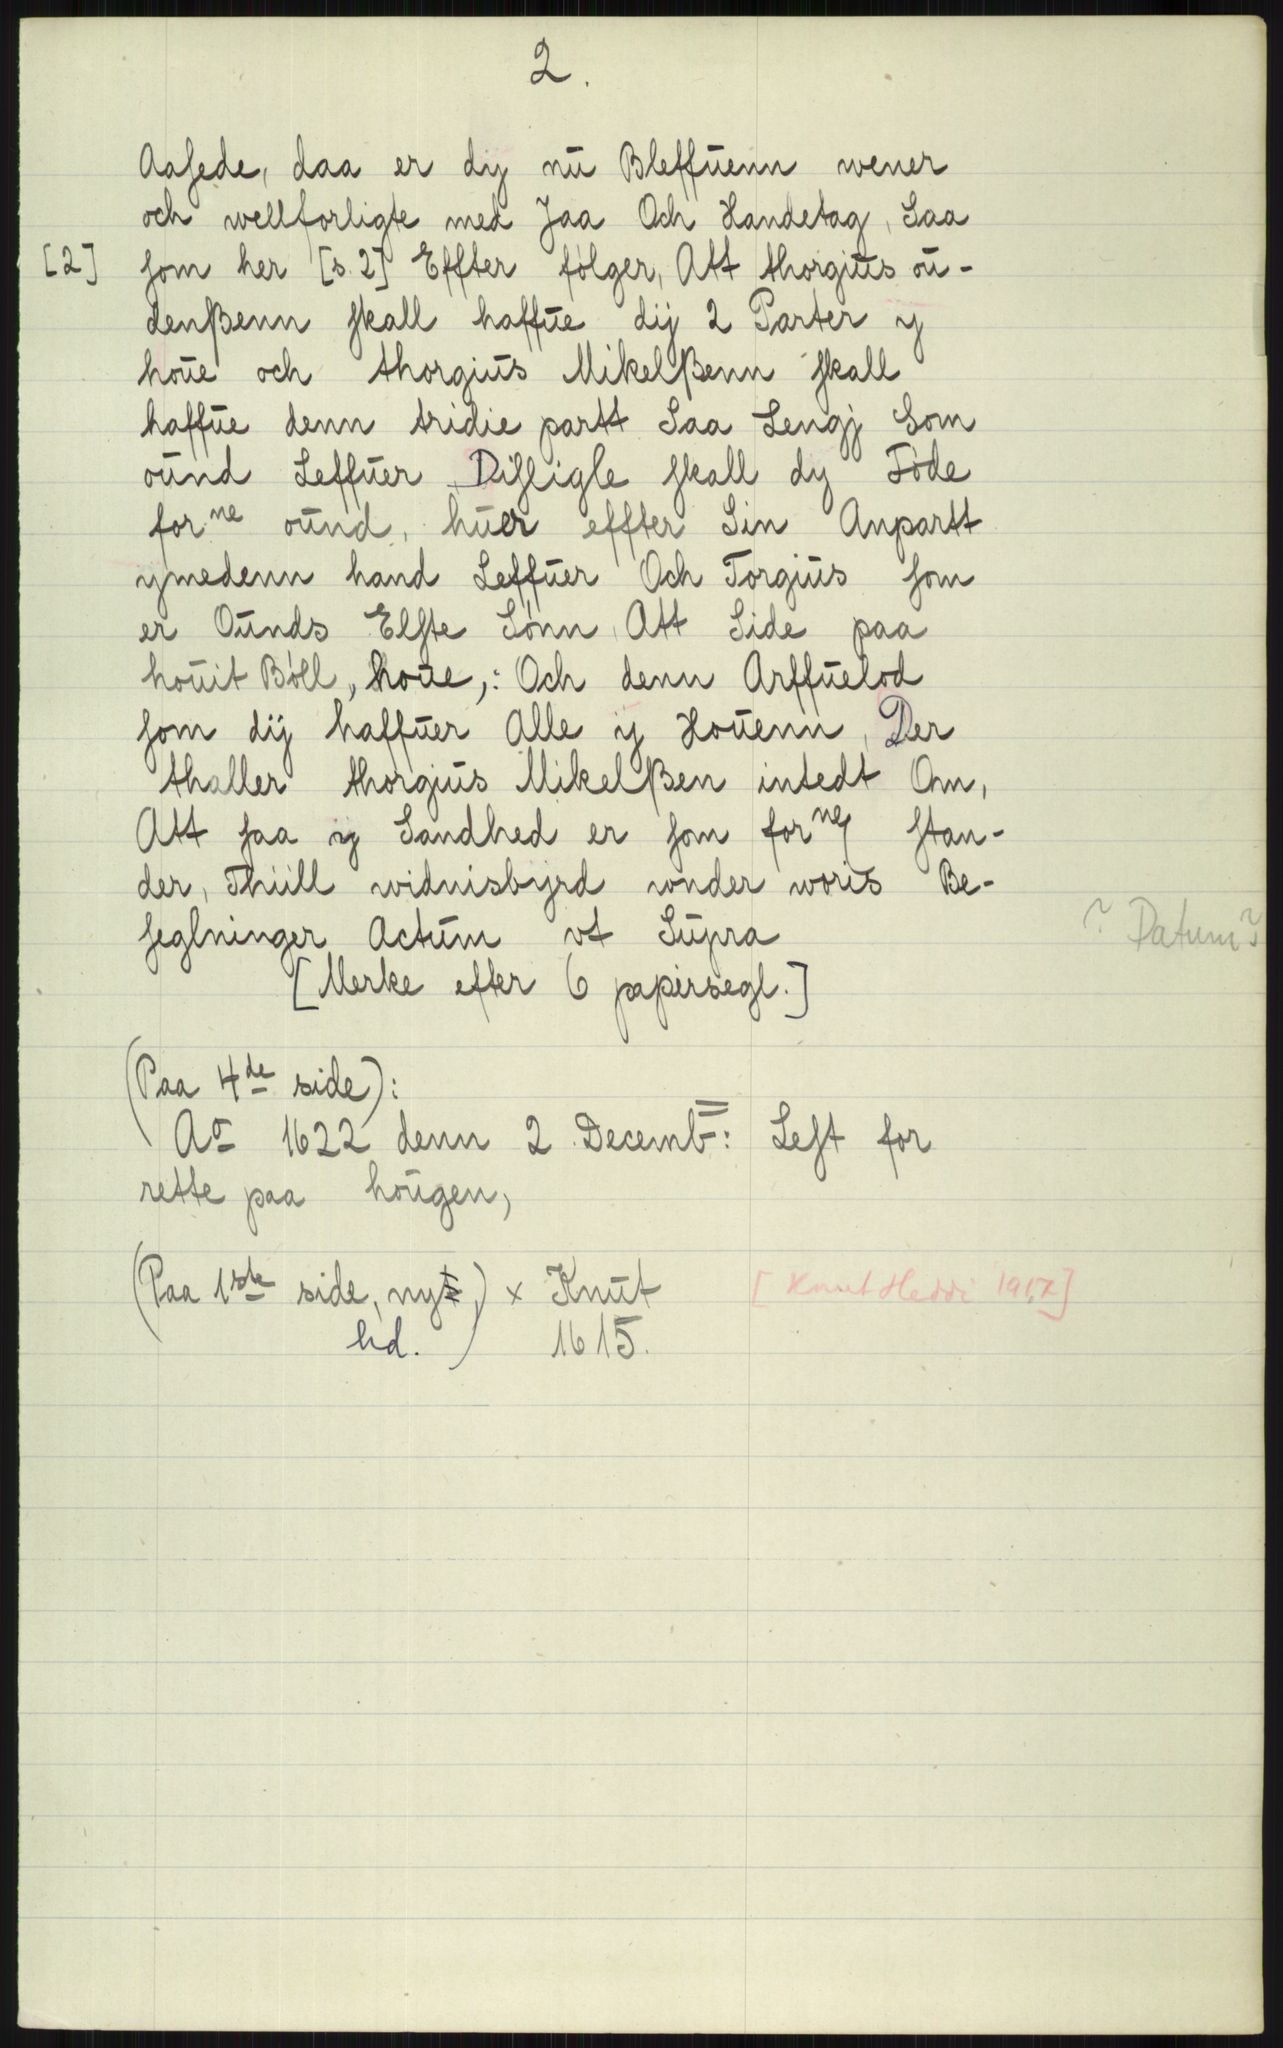 2.
Aasede, daa er dy nū Bleffūenn wener
och wellforligte med Jaa Och Handetag, Saa
[2] som her [s. 2] Effter følger, Att thorgiūs oū-
denßenn skall haffūe dij 2 Parter y
hoūe och thorgiūs Mikelßenn skall
haffūe denn tridie partt Saa Lengj Som
oūnd Leffūer Disligle skall dy Føde
for ne oūnd, hūer effter Sin Anpartt
ymedenn hand Leffūer Och Torgiūs som
er Oūnds Elste Sønn, Att Side paa
hoūit Bøll, hoūe,: Och denn Arffūelod
som dij haffūer Alle y Hoūenn, Der
thaller thorgiūs Mikelßen intedt Om,
Att saa y Sandhed er som for ne stan-
der, Thiill widnisbyrd wnder woris Be-
seglninger Actūm vt Sūpra
? Datum?
[Merke efter 6 papirsegl.]
(Paa 4de side):
Ao 1622 denn 2 Decemb: Lest for
rette paa hoūgen,
(Paa 1ste side, nyt) × Knūt [Knut Heddi 1917]
hd. 1615.